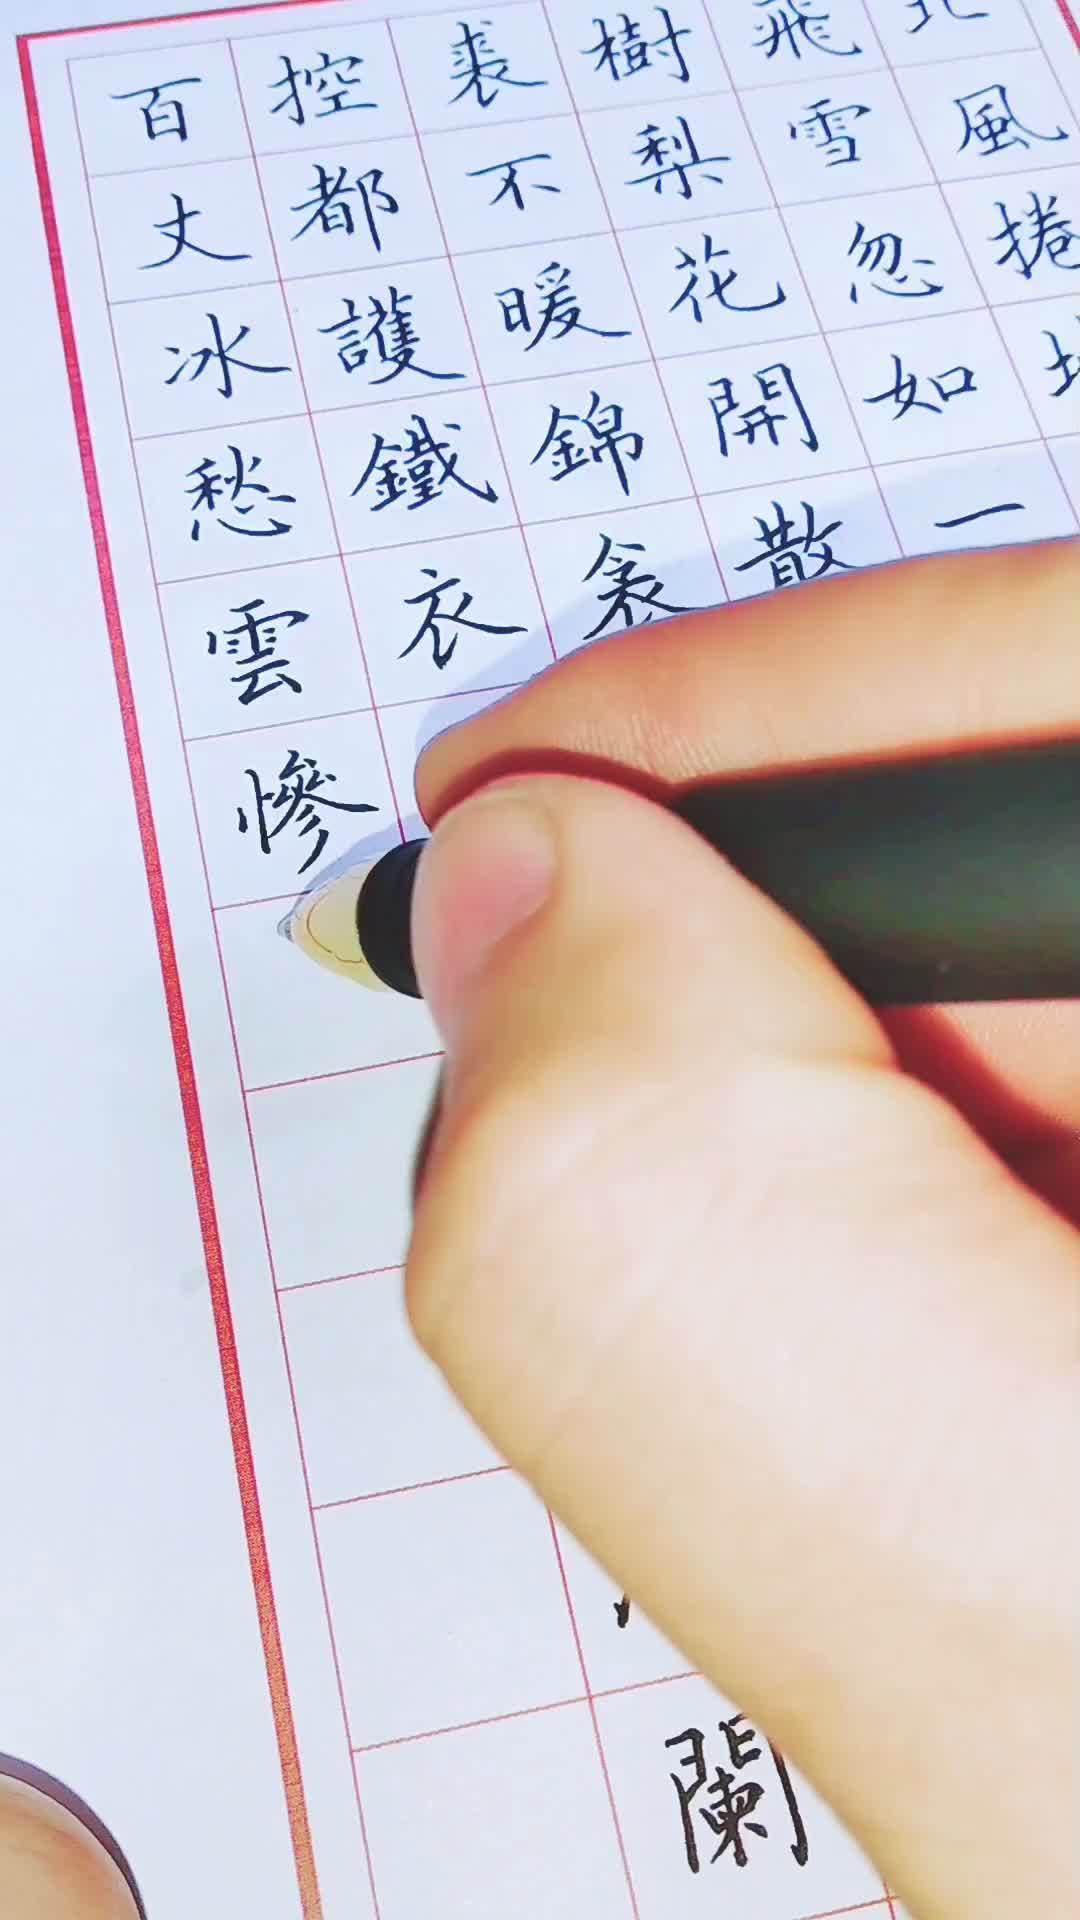 北風捲
飛雪忽如一
樹梨花開散
裘不暖錦衾
控都護鐵衣闌
百丈冰愁雲慘